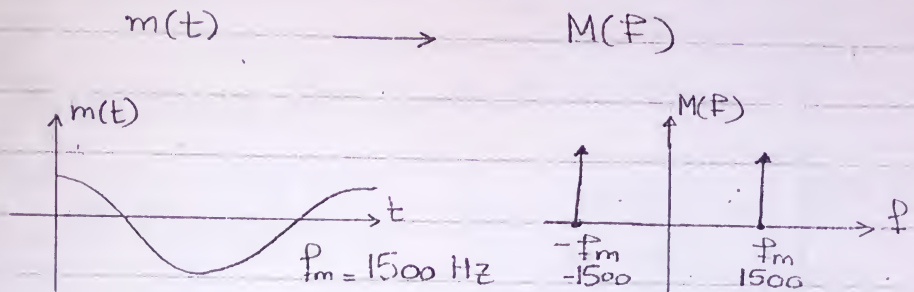 m(t) → M(f)
m(t)
t
fm = 1500 Hz
M(f)
-fm
-1500
fm
1500
f